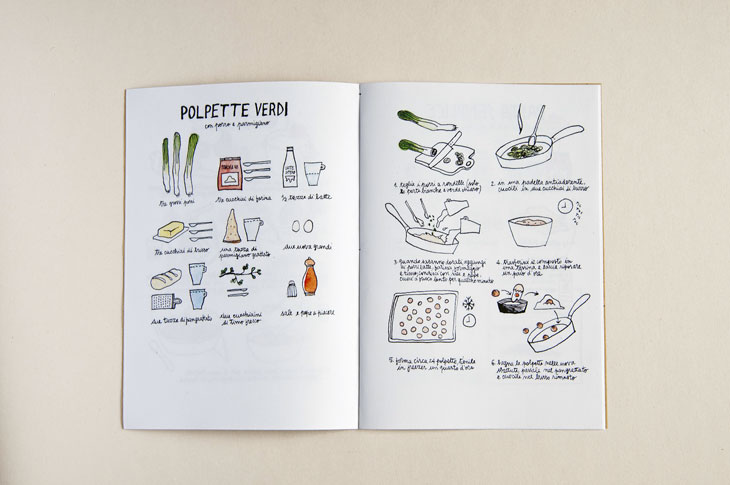 POLPETTE VERDI
con porro e parmigiano
tre grossi porri
tre cucchiai di farina
½ tazza di latte
tre cucchiai di burro
una tazza di
parmigiano grattato
due uova grandi
due tazze di pangrattato
due cucchiaini
di timo fresco
sale e pepe a piacere
1. taglia i porri a rondelle (solo
la parte bianca e verde chiaro)
2. in una padella antiaderente,
cuocile in due cucchiai di burro
3. quando saranno dorati aggiungi
farina, formaggio
e timo, condisci con sale e pepe.
cuoci a fuoco lento per qualche minuto
4. trasferisci il composto in
una terrina e lascia riposare
un paio d'ore
5. forma circa 24 polpette, tienile
in freezer un quarto d'ora
6. bagna le polpette nelle uova
sbattute, passale nel pangrattato
e cuocile nel burro rimasto